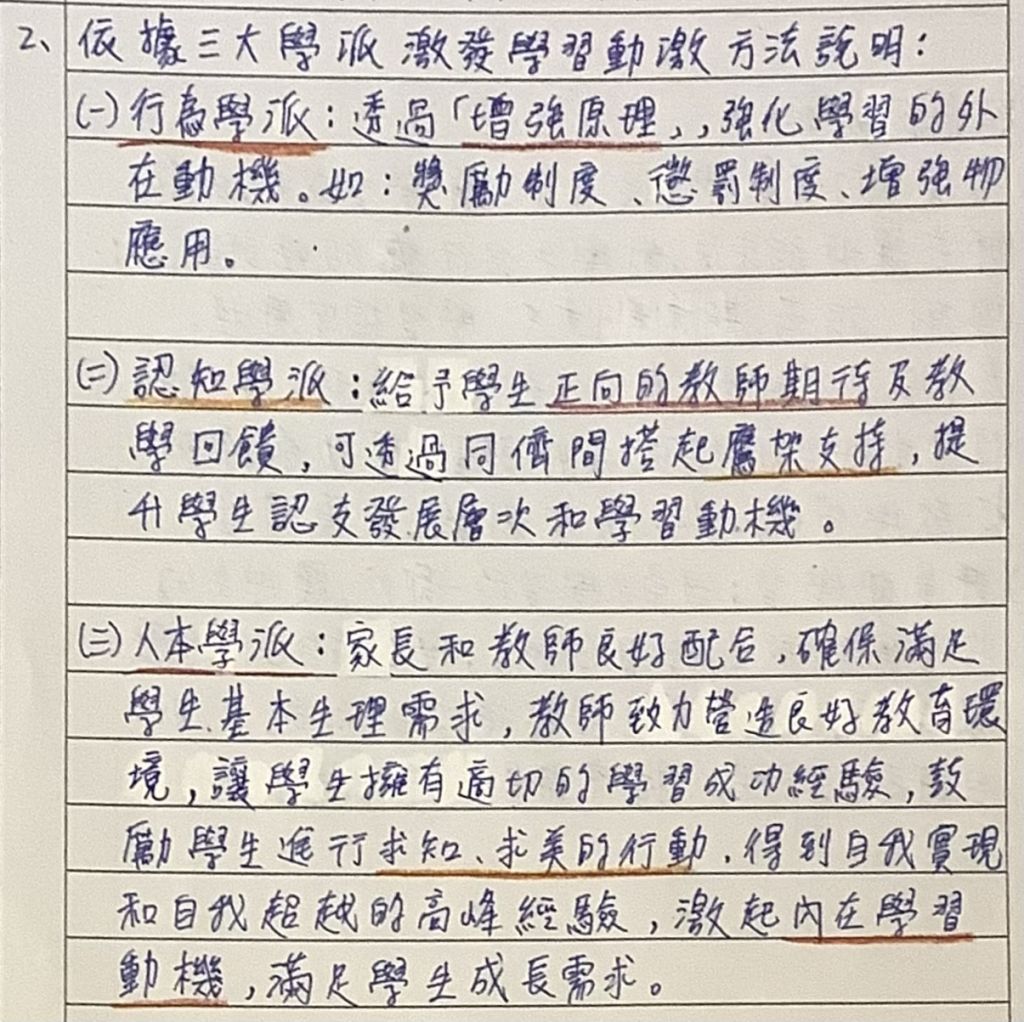 2、依據三大學派激發學習動激方法說明：
(一)行為學派：透過「增強原理」，強化學習的外
在動機。如：獎勵制度、懲罰制度、增強物
應用。
(二)認知學派：給予學生正向的教師期待及教
學回饋，可透過同儕間搭起鷹架支持，提
升學生認支發展層次和學習動機。
(三)人本學派：家長和教師良好配合，確保滿足
學生基本生理需求，教師致力營造良好教育環
境，讓學生擁有適切的學習成功經驗，鼓
勵學生進行求知、求美的行動，得到自我實現
和自我超越的高峰經驗，激起內在學習
動機，滿足學生成長需求。